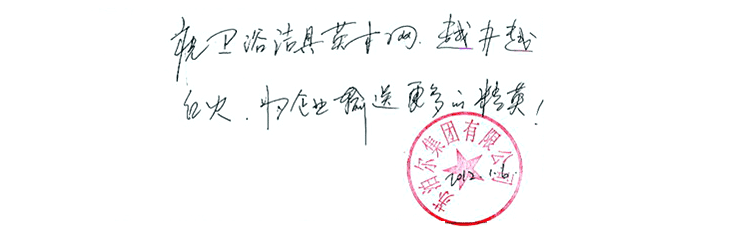 祝卫浴洁具英才网.越办越
红火.为企业输送更多的精英!
苏泊尔集团有限公司
2012.1.6